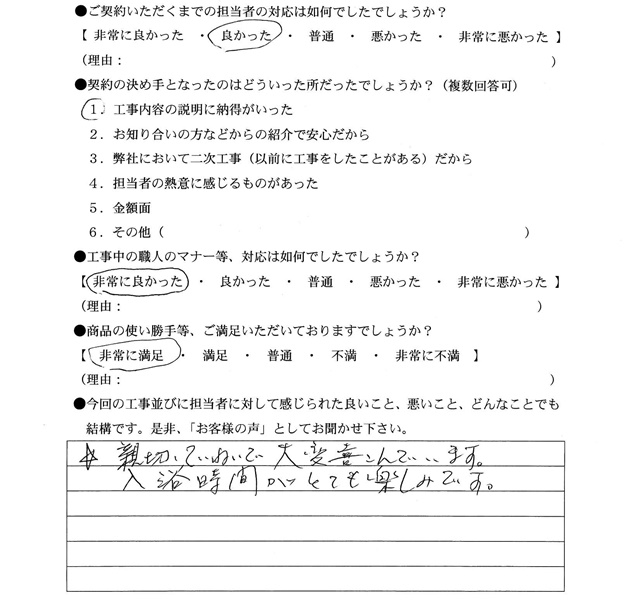 ●ご契約いただくまでの担当者の対応は如何でしたでしょうか？
【 非常に良かった ・ 良かった ・ 普通 ・ 悪かった ・ 非常に悪かった 】
（理由： ）
●契約の決め手となったのはどういった所だったでしょうか？（複数回答可）
１．工事内容の説明に納得がいった
２．お知り合いの方などからの紹介で安心だから
３．弊社において二次工事（以前に工事をしたことがある）だから
４．担当者の熱意に感じるものがあった
５．金額面
６．その他（ ）
●工事中の職人のマナー等、対応は如何でしたでしょうか？
【 非常に良かった ・ 良かった ・ 普通 ・ 悪かった ・ 非常に悪かった 】
（理由： ）
●商品の使い勝手等、ご満足いただいておりますでしょうか？
【 非常に満足 ・ 満足 ・ 普通 ・ 不満 ・ 非常に不満 】
（理由： ）
●今回の工事並びに担当者に対して感じられた良いこと、悪いこと、どんなことでも
結構です。是非、「お客様の声」としてお聞かせ下さい。
親切ていねいで 大変喜こんでいます。
入浴時間がとても楽しみです。